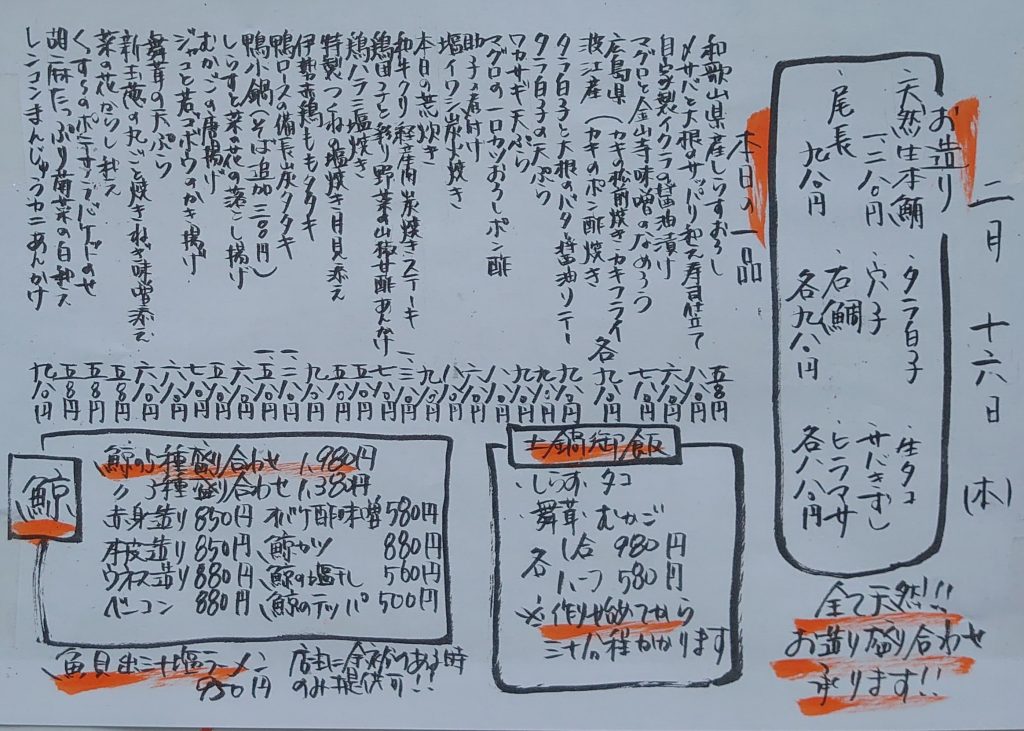 二月十六日(木)
お造り
・天然生本鮪
一、二八〇円
・尾長
九八〇円
・タラ白子
・穴子
・石鯛
各九八〇円
・生タコ
・サバきずし
・ヒラマサ
各八八〇円
全て天然!!
お造り盛り合わせ
承ります!!
本日の一品
和歌山県産しらすおろし 五八〇円
〆サバと大根のサッパリ和え寿司仕立て 八八〇円
自家製イクラの醤油漬け
マグロと金山寺味噌のなめろう
広島県(カキの松前焼き・カキフライ
渡江産(カキのポン酢焼き 各九八〇円
タラ白子と大根のバタ醤油ソテー
タラ白子の天ぷら
ワカサギ天ぷら
マグロの一口カツおろしポン酢
助子の煮付け
塩イワシ炭火焼き
本日の荒炊き
和牛クリ経産肉炭焼きステーキ
鶏団子と彩り野菜の山椒甘酢あんかけ
鶏ハラミ塩焼き
特製つくねの塩焼き月見添え
伊勢赤鶏ももタタキ
鴨ロースの備長炭タタキ
鴨小鍋(そば追加三〇〇円)
しらすと菜の花の落とし揚げ
むかごの唐揚げ
ジャコと若ゴボウのかき揚げ
舞茸の天ぷら
新玉葱の丸ごと焼きねぎ味噌添え
菜の花からし和え
くずらのポテサラバケットのせ
胡麻たっぷり菊菜の白和え 五八〇円
レンコンまんじゅうカニあんかけ 九八〇円
土鍋御飯
・しらす・タコ
・舞茸・むかご
各 1合 980円
ハーフ 580円
※作り始めてから
三十分程かかります
鯨
鯨の5種盛り合わせ 1,980円
〃 3種盛り合わせ 1,380円
赤身造り 850円 オバケ酢味噌 580円
本皮造り 850円 鯨カツ 880円
ウネス造り 880円 鯨の塩干し 560円
ベーコン 880円 鯨のテッパ 500円
魚貝出汁塩ラーメン
950円
店主に余裕のある時
のみ提供可!!